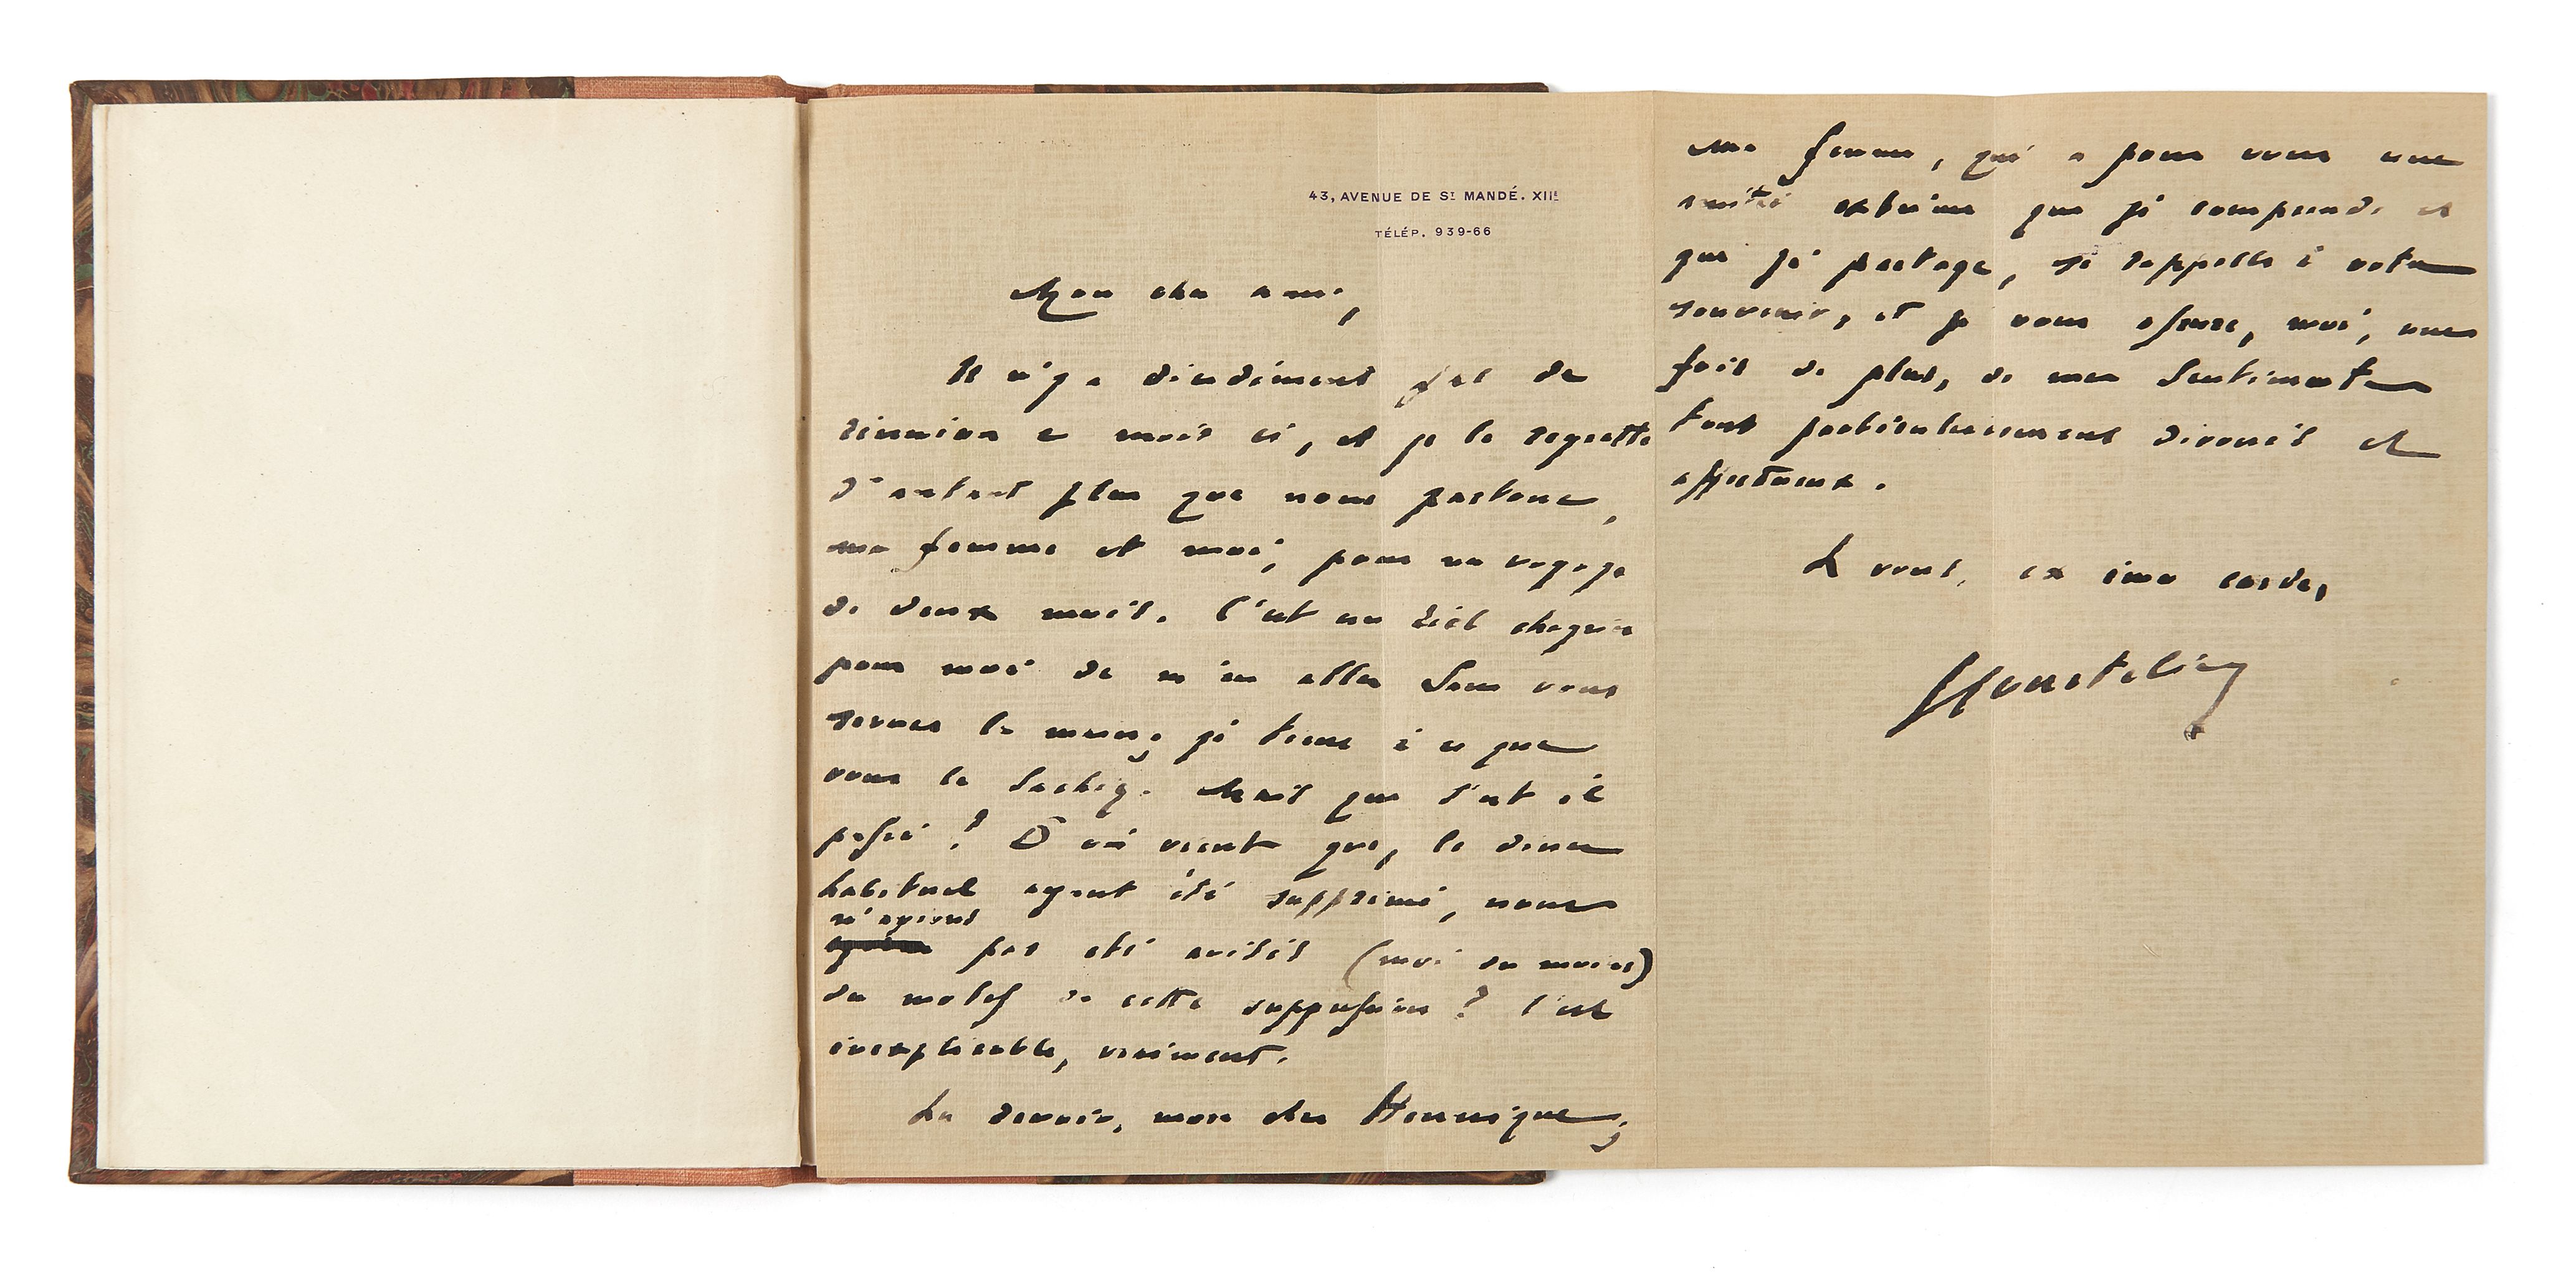 43, AVENUE DE ST MANDÉ. XIIE
TÉLÉP. 939-66
Mon cher ami,
Il n'y a décidément pas de
réunion ce mois ci, et je le regrette
d'autant plus que nous partons,
ma femme et moi, pour un voyage
de deux mois. C'est un réel chagrin
pour moi de m'en aller sans vous
serrer la main; je tiens à ce que
vous le sachiez. Mais que s'est il
passé ? D'où vient que, le diner
habituel ayant été supprimé, nous
n'ayions
pas été avisés (moi du moins)
du motif de cette suppression ? C'est
inexplicable, vraiment.
Au revoir, mon cher Hennique;
ma femme, qui a pour vous une
amitié extrême que je comprends et
que je partage, se rappelle à votre
souvenir, et je vous assure, moi, une
fois de plus, de mes sentiments
tout particulièrement dévoués et
affectueux.
A vous, ex imo corde,
GCourteline